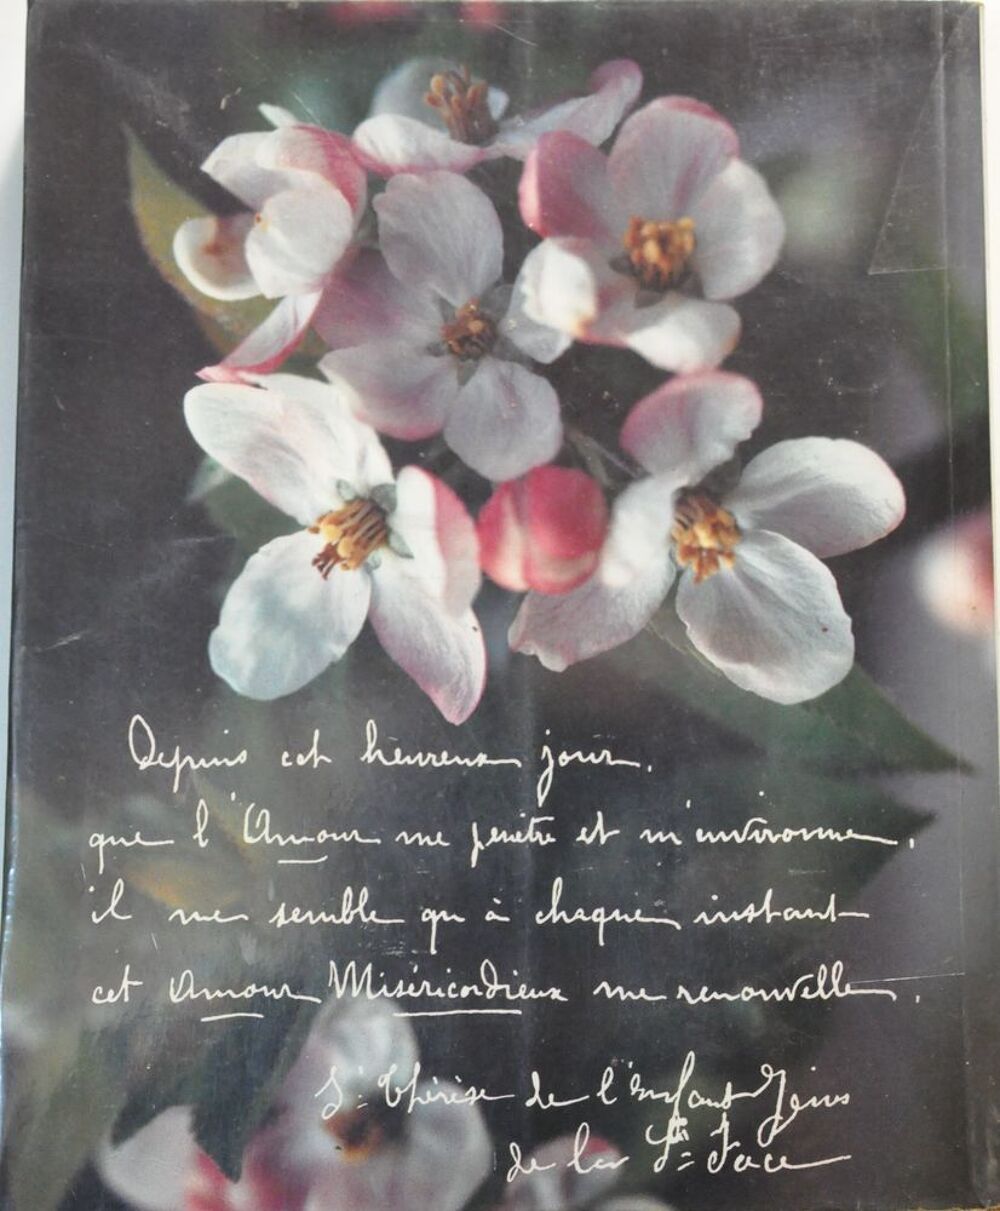 Depuis cet heureux jour,
que l'Amour me pénètre et m'environne,
il me semble qu'à chaque instant
cet Amour Miséricordieux me renouvelle,
Sr Thérèse de l'Enfant Jésus
de la Ste Face